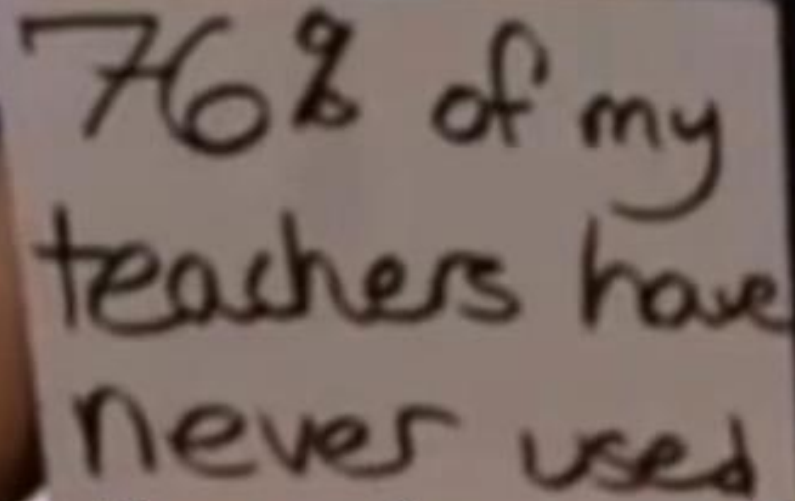 76% of my
teachers have
never used